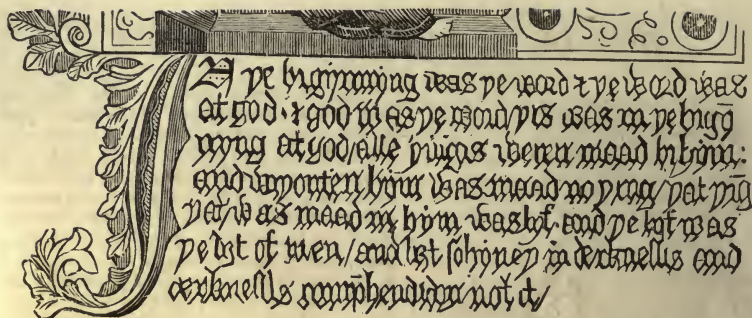 IN ye bigynnyng was ye word & ye word was
at god · & god was ye word / yis was in ye bigyn̄
nyng at god / alle yingis weren maad bi hym:
and wiyouten hym was maad no ying / yat yīg
yat was maad in hym was lyf · and ye lyf was
ye liȝt of men / and liȝt schyney in derknessis and
derknessis comp̄hendiden not it /